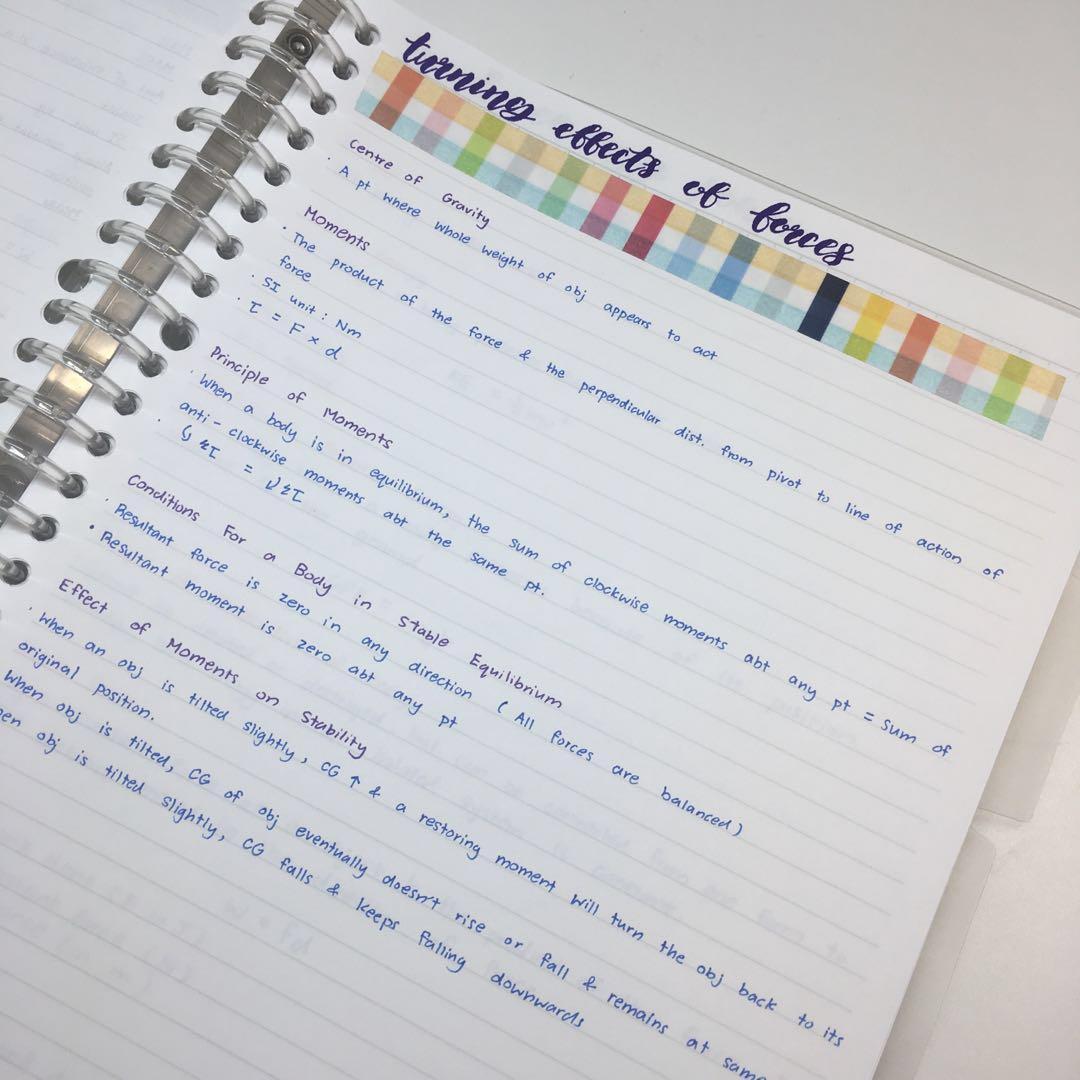 turning effects of forces
Centre of Gravity
· A pt where whole weight of obj appears to act
Moments
· The product of the force & the perpendicular dist. from pivot to line of action of
force
· SI unit : Nm
· τ = F × d
Principle of Moments
· When a body is in equilibrium, the sum of clockwise moments abt any pt = sum of
anti-clockwise moments abt the same pt.
· ↺ Στ = ↻ Στ
Conditions For a Body in Stable Equilibrium
· Resultant force is zero in any direction ( All forces are balanced )
· Resultant moment is zero abt any pt
Effect of Moments on Stability
· When an obj is tilted slightly, CG ↑ & a restoring moment will turn the obj back to its
original position.
When obj is tilted, CG of obj eventually doesn't rise or fall & remains at same
obj is tilted slightly, CG falls & keeps falling downwards